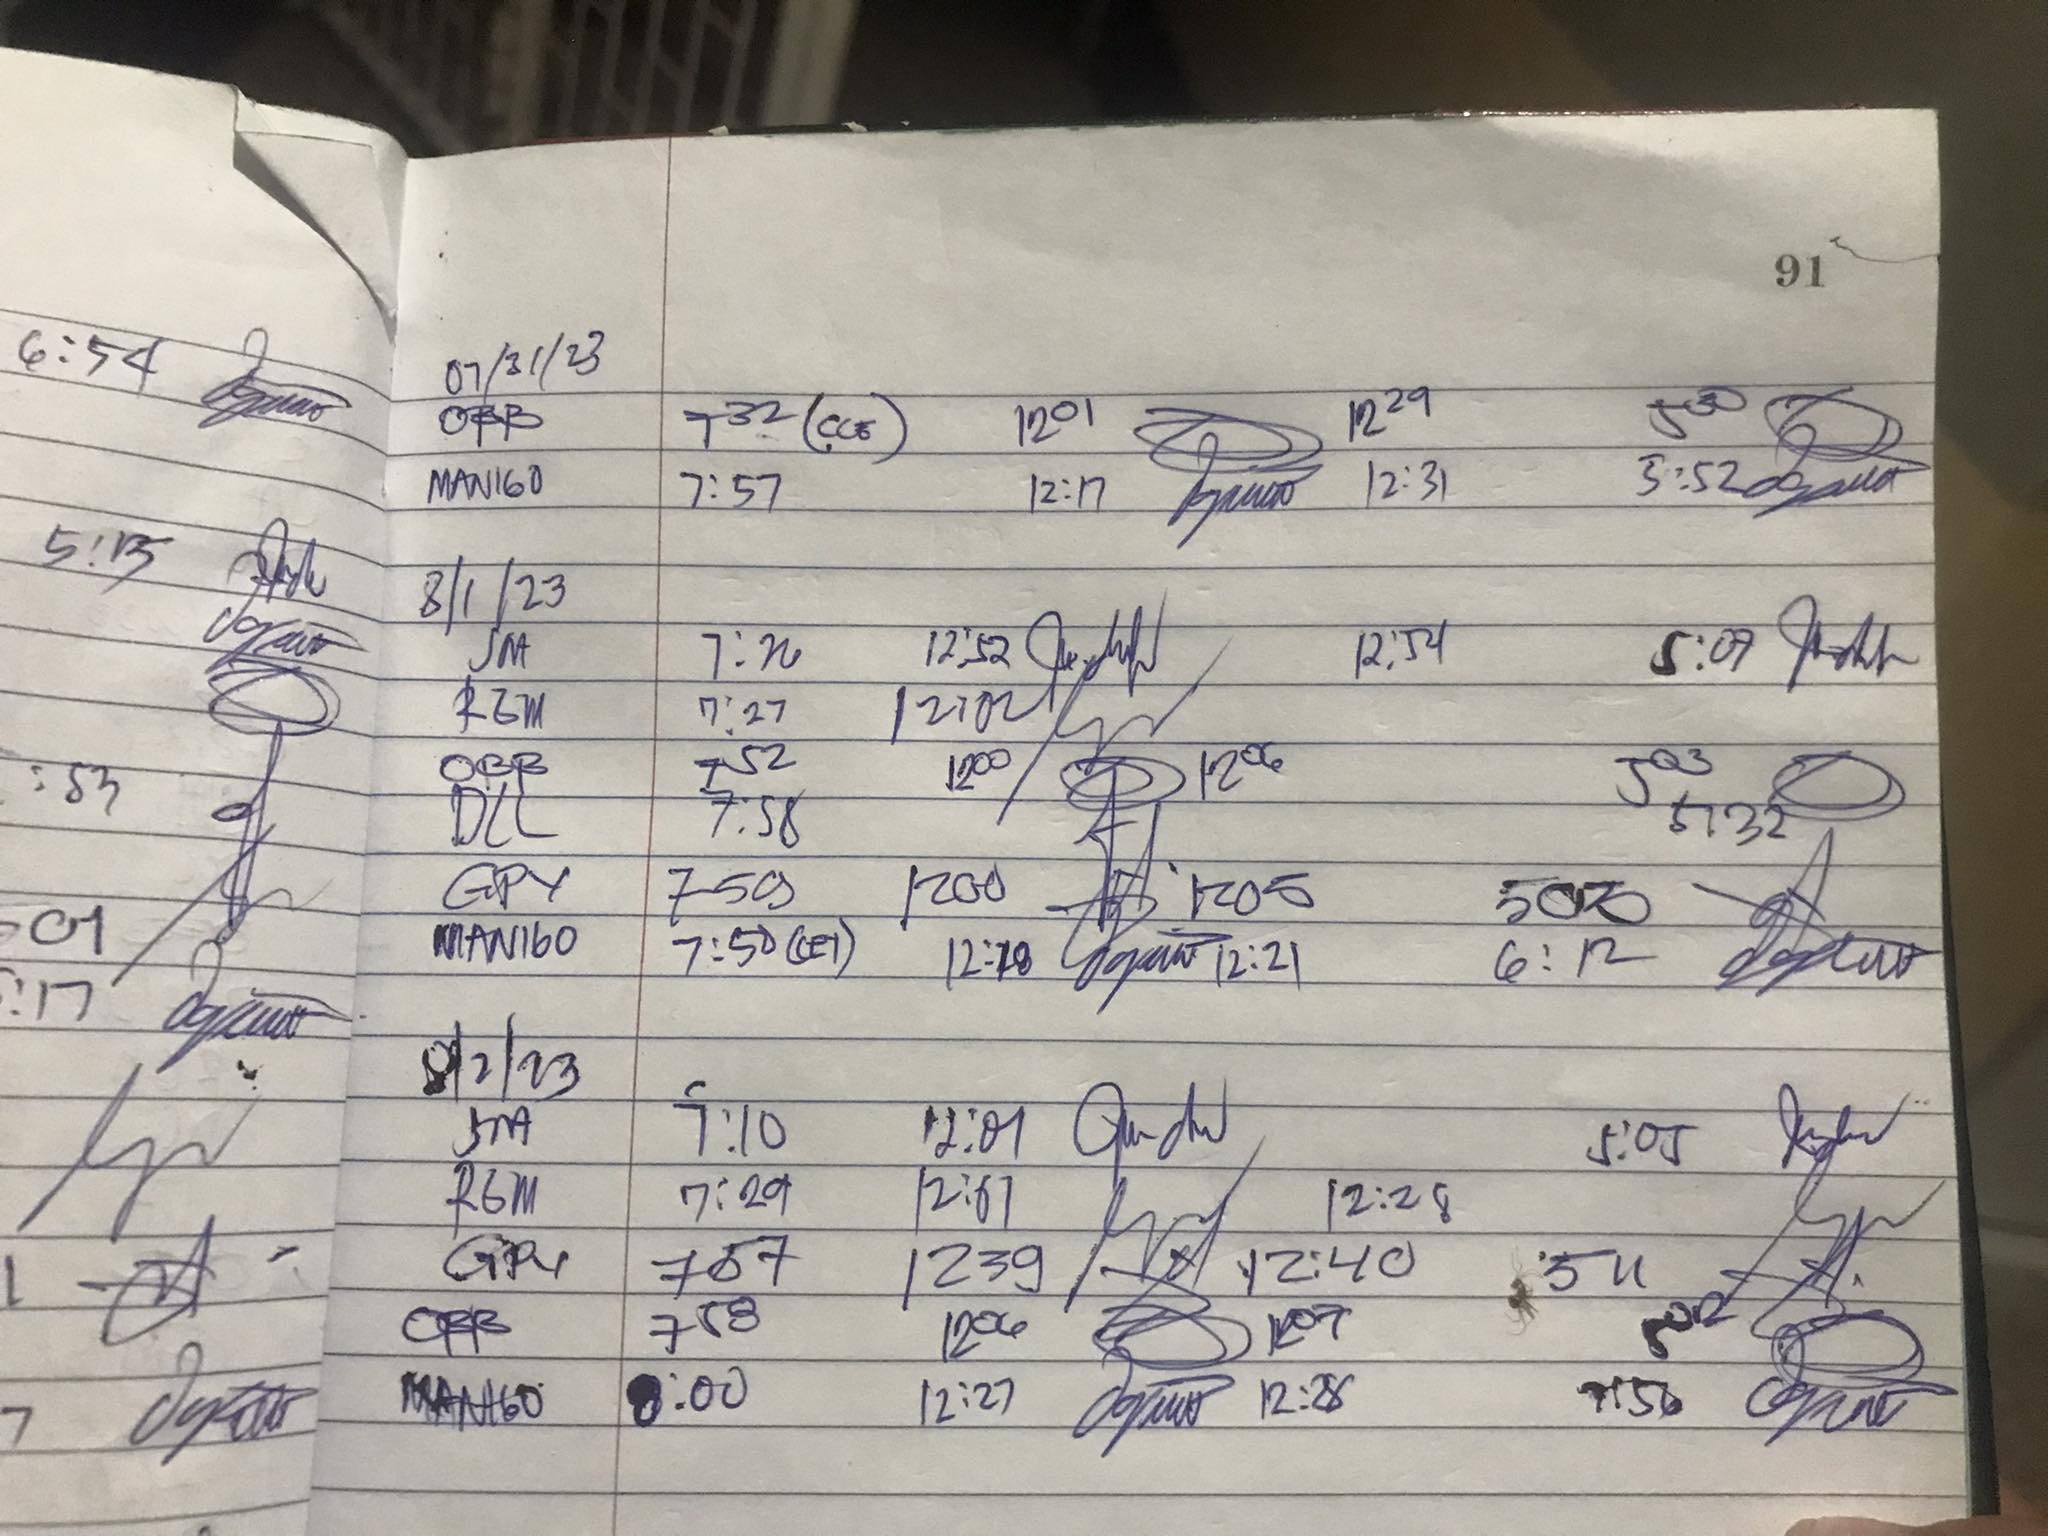 91
6:54
07/31/23
OBB 7 32 (CCE) 12 01 12 29 5 30
MANIGO 7:57 12:17 12:31 5:52
5:15
8/1/23
JNA 7:26 12:52 12:54 5:09
RGM 7:27 12:02
:53
OBB 7 52 12 00 12 06 5 03
DLL 7:58 5:32
GPY 7 59 1200 1205
01
MANIGO 7:50 12:18 12:21 6:12
:17
8/2/23
JNA 7:10 12:01 5:05
RGM 7:29 12:07 12:28
GPY 757 1239 12:40 511
OBB 7 58 12 06 12 07
7
MANIGO 8:00 12:27 12:28 7:56